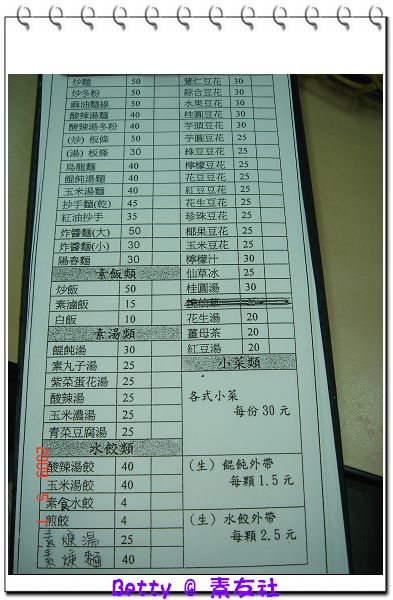 炒麵 50
炒冬粉 50
麻油麵線 50
酸辣湯麵 40
酸辣湯冬粉 40
(炒) 板條 50
(湯) 板條 30
烏龍麵 40
餛飩湯麵 40
玉米湯麵 40
抄手麵(乾) 45
紅油抄手 35
炸醬麵(大) 50
炸醬麵(小) 30
陽春麵 30
素飯類
炒飯 50
素滷飯 15
白飯 10
素湯類
餛飩湯 30
素丸子湯 25
紫菜蛋花湯 25
酸辣湯 25
玉米濃湯 25
青菜豆腐湯 25
水餃類
酸辣湯餃 40
玉米湯餃 40
素食水餃 4
煎餃 4
素焿湯 25
素焿麵 40
薏仁豆花 30
綜合豆花 30
水果豆花 30
桂圓豆花 30
芋頭豆花 30
芋圓豆花 25
綠豆豆花 25
檸檬豆花 25
花豆豆花 25
紅豆豆花 25
花生豆花 25
珍珠豆花 25
椰果豆花 25
玉米豆花 25
檸檬汁 30
仙草冰 25
桂圓湯 30
花生湯 20
薑母茶 20
紅豆湯 20
小菜類
各式小菜
每份 30 元
(生) 餛飩外帶
每顆 1.5 元
(生) 水餃外帶
每顆 2.5 元
2009 5 1
Betty @ 素友社